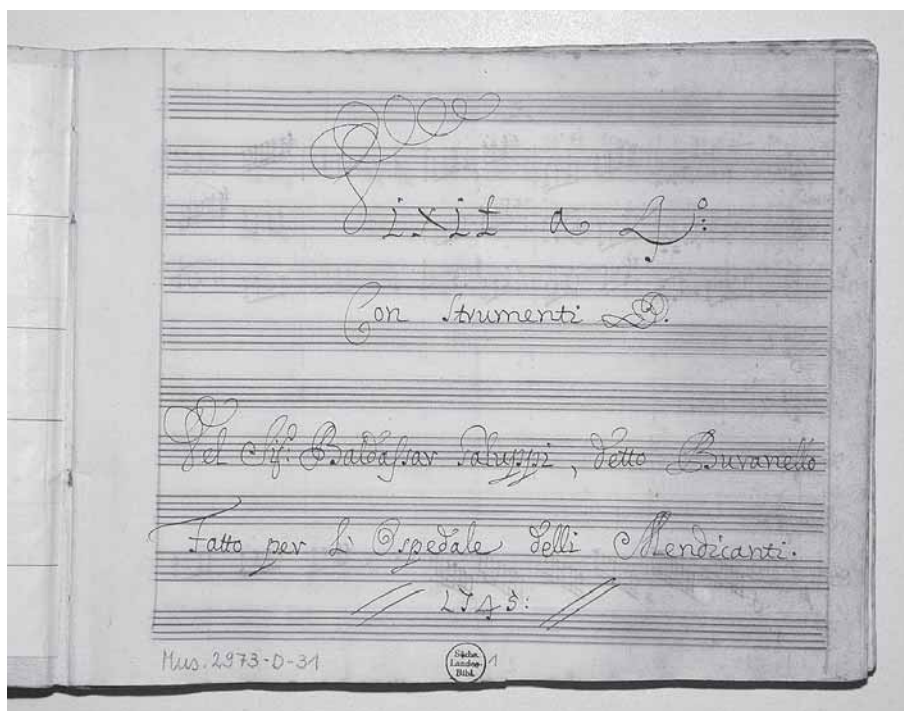 Dixit a 4:º
Con Strumenti
Del Sig: Baldassar Galuppi, detto Buranello
Fatto per L'Ospedale delli Mendicanti.
1745:
Mus. 2973-D-31
Sächs.
Landes-
Bibl.
1